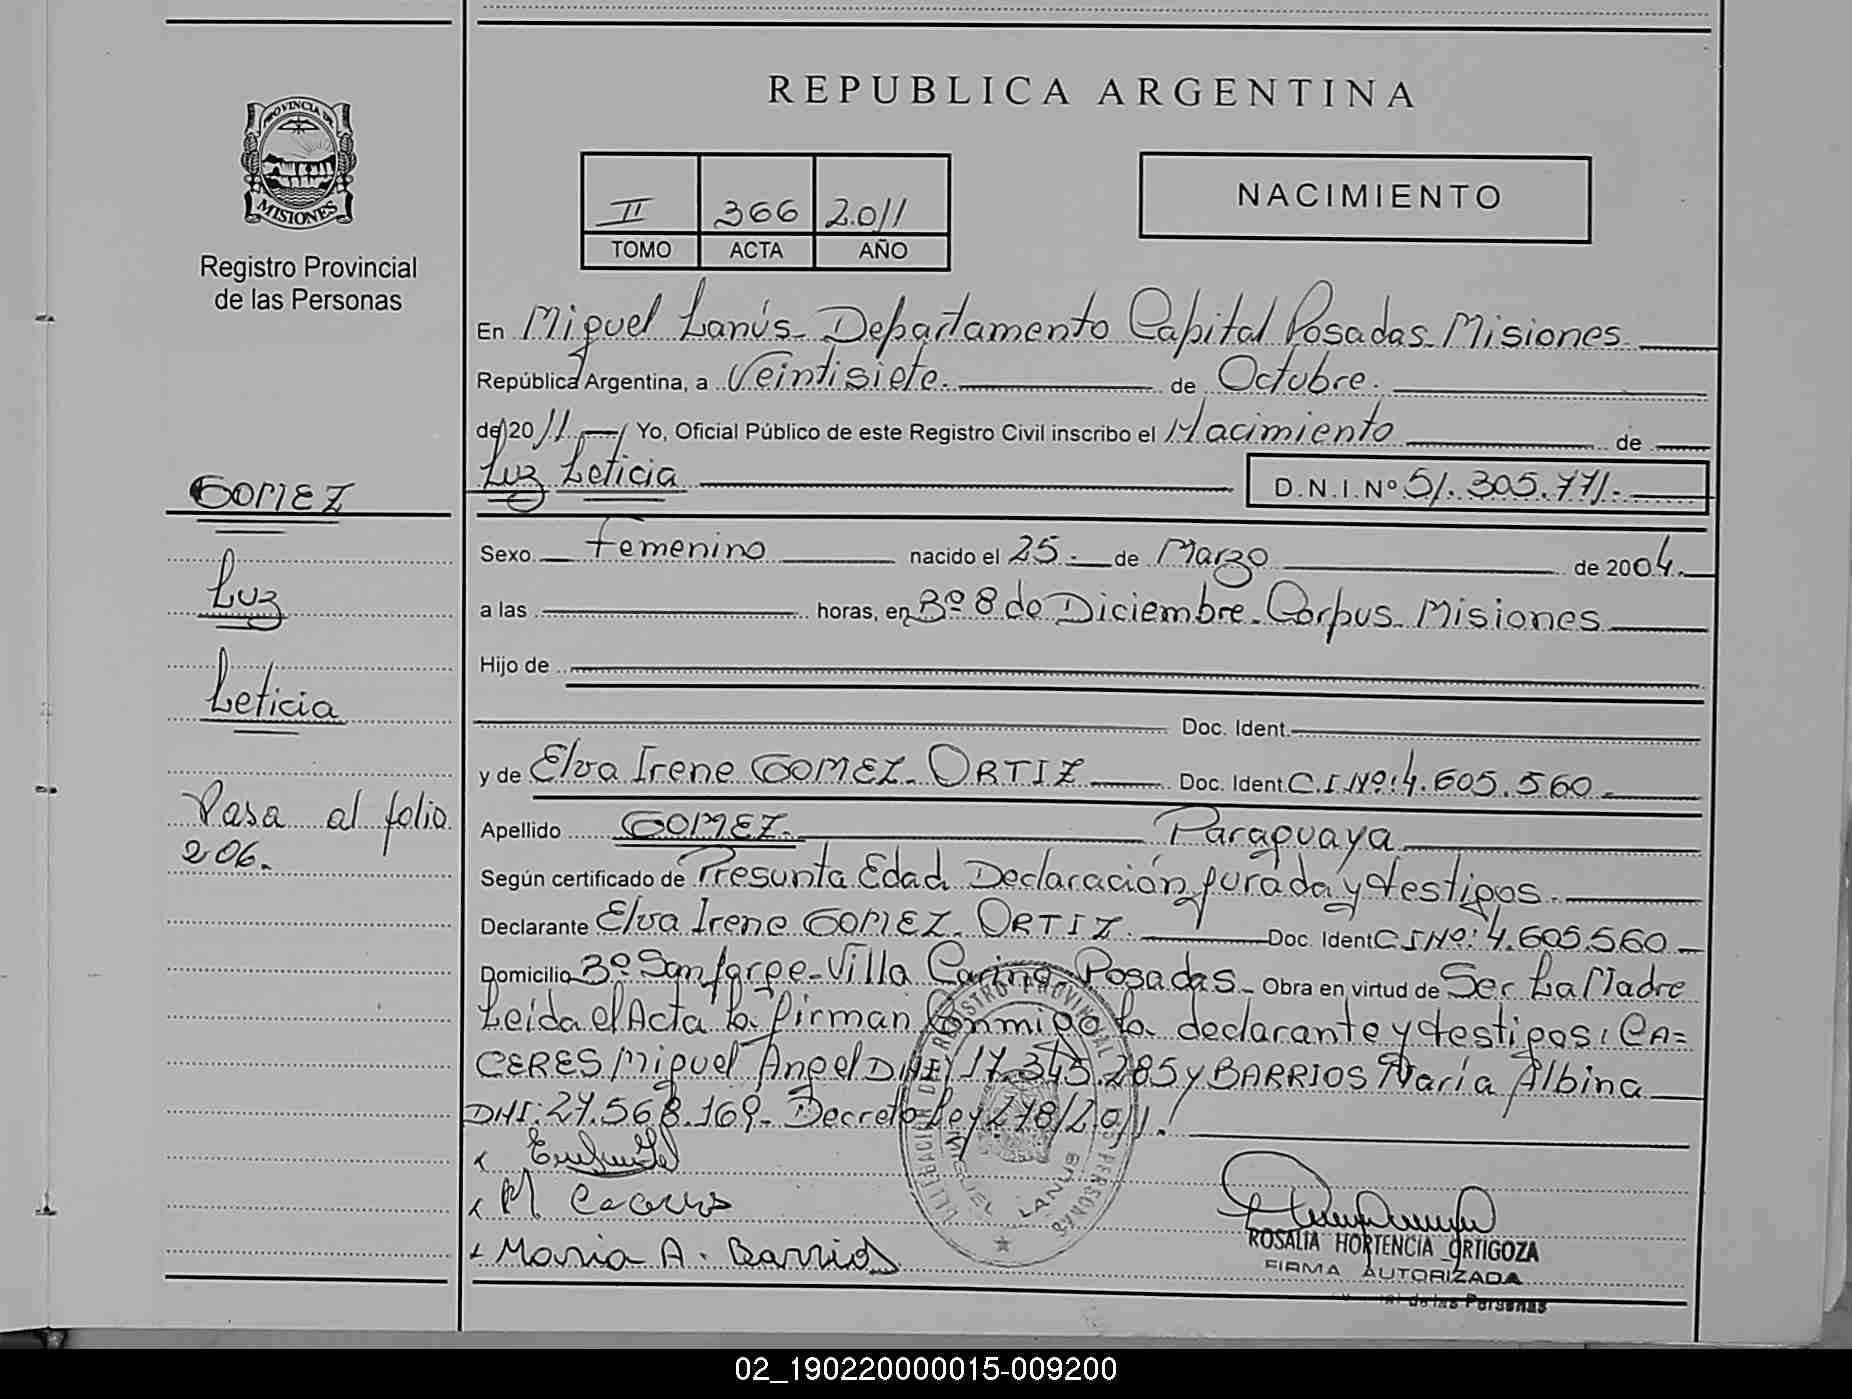 REPUBLICA ARGENTINA
PROVINCIA DE
MISIONES
Registro Provincial
de las Personas
II 366 2.011
TOMO ACTA AÑO
NACIMIENTO
En Miguel Lanús. Departamento Capital Posadas. Misiones
República Argentina, a Veintisiete. de Octubre.
de 2011. Yo, Oficial Público de este Registro Civil inscribo el Nacimiento de
Luz Leticia D.N.I. Nº 51.305.771.-
GOMEZ
Luz
Leticia
Pasa al folio
206.
Sexo Femenino nacido el 25. de Marzo de 2004.
a las horas, en Bº 8 de Diciembre. Corpus. Misiones
Hijo de
Doc. Ident.
y de Elva Irene GOMEZ. ORTIZ Doc. Ident. C.I. Nº: 4.605.560.
Apellido GOMEZ. Paraguaya
Según certificado de Presunta Edad Declaración Jurada y testigos.
Declarante Elva Irene GOMEZ. ORTIZ. Doc. Ident C I Nº: 4.605.560
Domicilio Bº San Jorge. Villa Posadas. Obra en virtud de Ser La Madre
Leída el Acta la firman Conmigo la declarante y testigos: CA=
CERES Miguel Angel DNI 17.345.285 y BARRIOS María Albina
DNI: 27.568.169. Decreto Ley 278/2.011.
M Caceres
Maria A. Barrios
REGISTRO PROVINCIAL DE LAS PERSONAS
MIGUEL LANUS
ROSALIA HORTENCIA ORTIGOZA
FIRMA AUTORIZADA
de las Personas
02_190220000015-009200